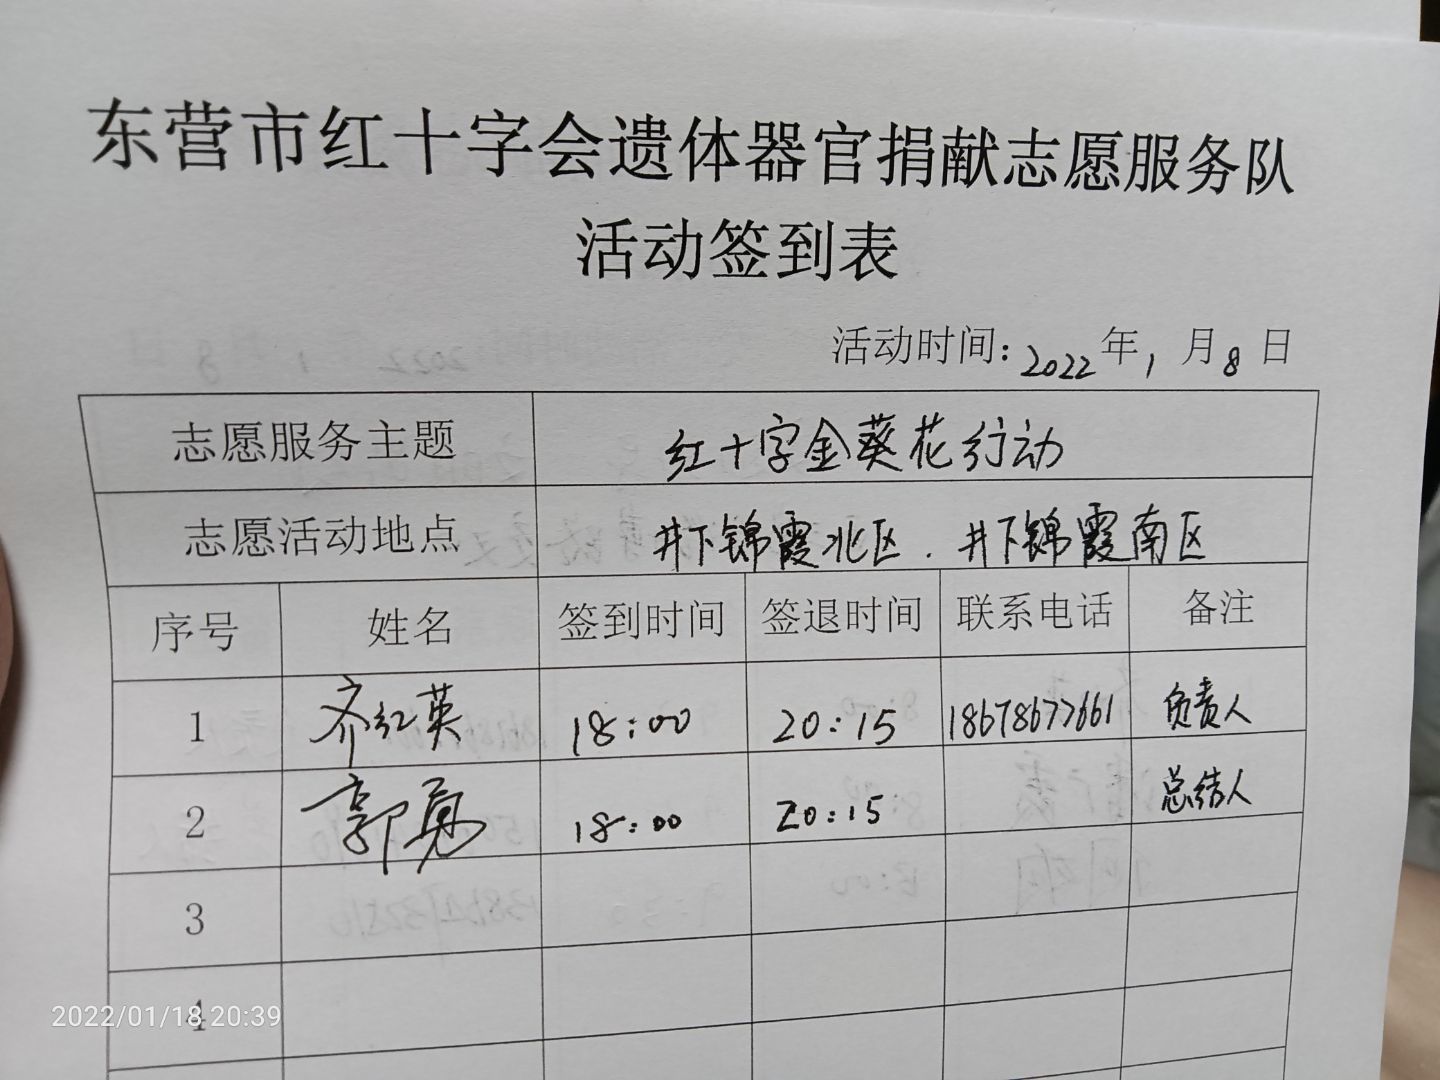 东营市红十字会遗体器官捐献志愿服务队
活动签到表
活动时间：2022年1月8日
志愿服务主题 红十字金葵花行动
志愿活动地点 井下锦霞北区．井下锦霞南区
序号 姓名 签到时间 签退时间 联系电话 备注
1 齐红英 18:00 20:15 18678677661 负责人
2 郭勇 18:00 20:15 总结人
3
4
2022/01/18 20:39